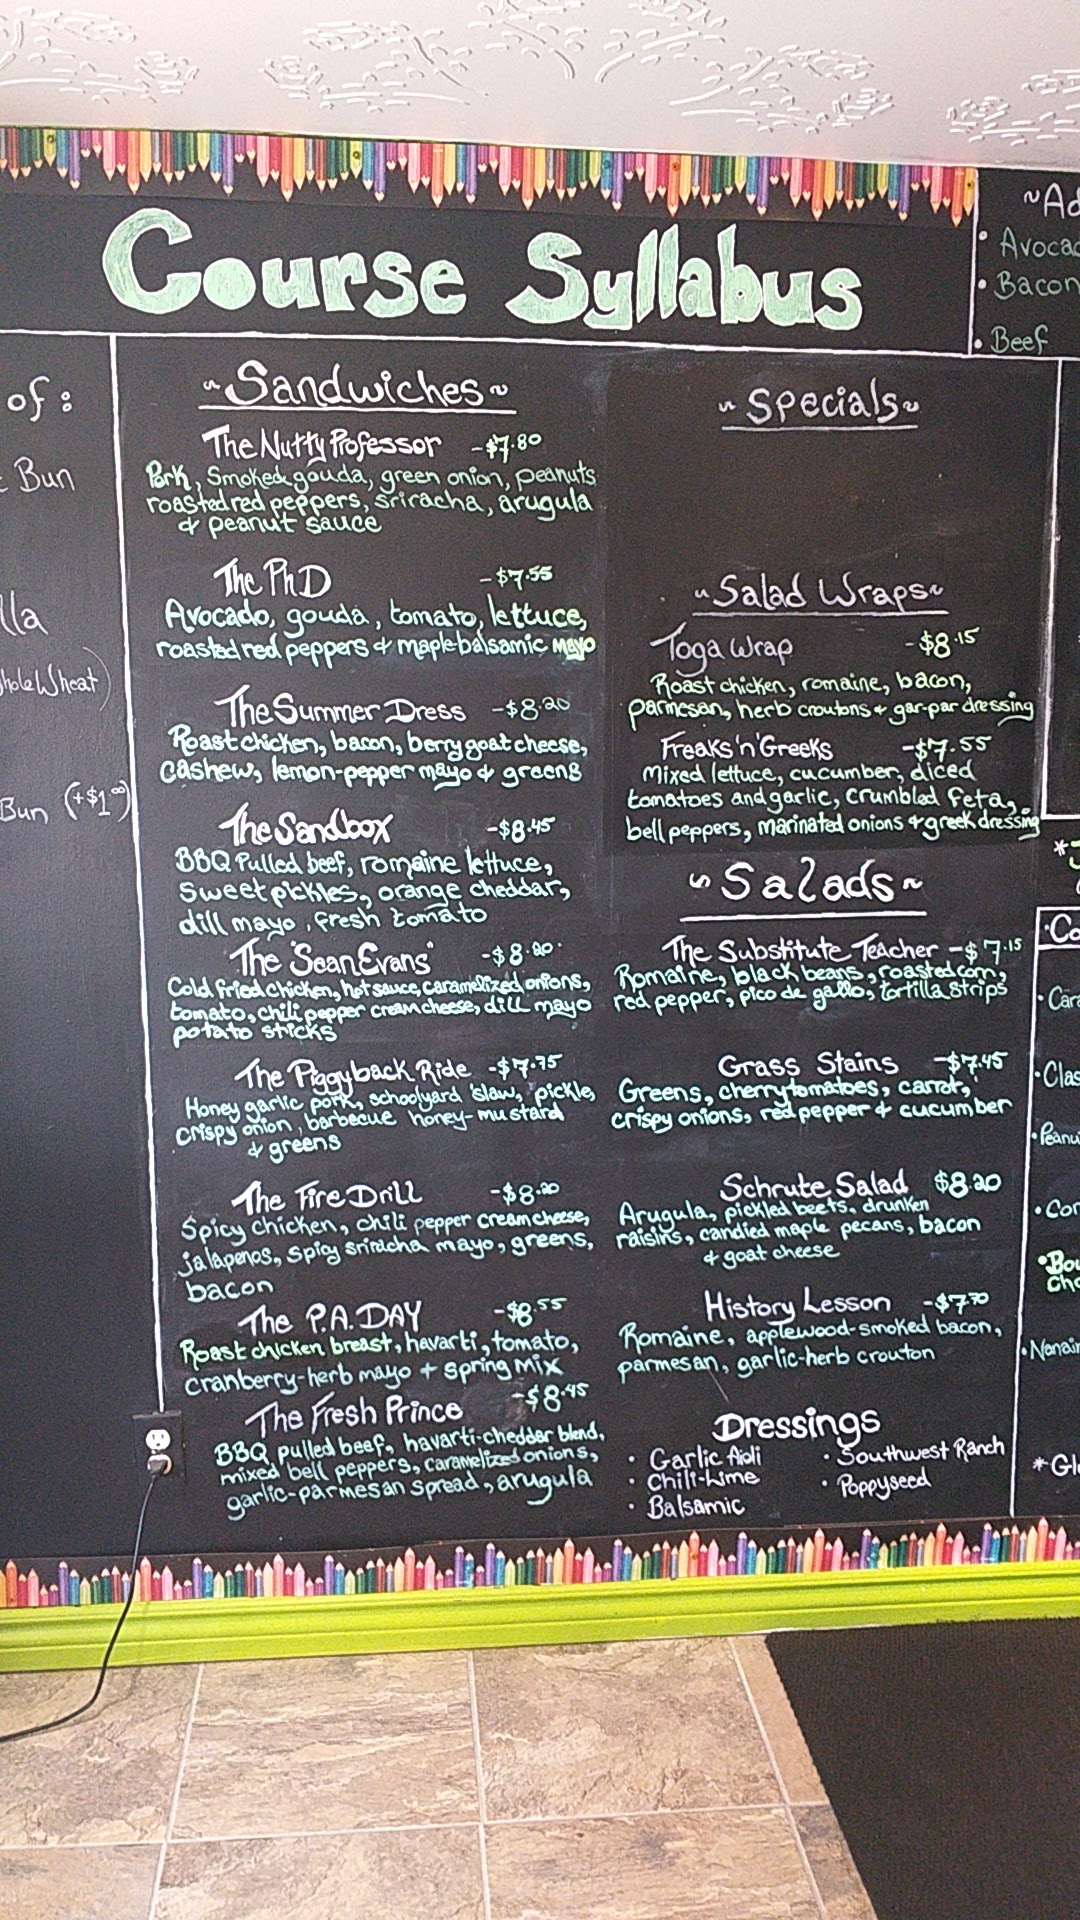 Course Syllabus
of:
Bun
lla
Bun (+$1⁰⁰)
~Sandwiches~
The Nutty Professor -$7.80
Pork, Smoked gouda, green onion, peanuts
roasted red peppers, sriracha, arugula
& peanut sauce
The PhD -$7.55
Avocado, gouda, tomato, lettuce,
roasted red peppers & maple-balsamic mayo
The Summer Dress -$8.20
Roast chicken, bacon, berry goat cheese,
cashews, lemon-pepper mayo & greens
The Sandbox -$8.45
BBQ Pulled beef, romaine lettuce,
Sweet pickles, orange cheddar,
dill mayo, fresh tomato
The "Sean Evans" -$8.20
Cold fried chicken, hot sauce, caramelized onions,
tomato, chili pepper cream cheese, dill mayo
potato sticks
The Piggyback Ride -$7.75
Honey garlic pork, schoolyard 'slaw, pickle,
crispy onion, barbecue honey-mustard
& greens
The Fire Drill -$8.20
Spicy chicken, chili pepper cream cheese,
jalapenos, spicy sriracha mayo, greens,
bacon
The P.A. DAY -$8.55
Roast chicken breast, havarti, tomato,
cranberry-herb mayo + spring mix
The Fresh Prince -$8.45
BBQ pulled beef, havarti-cheddar blend,
mixed bell peppers, caramelized onions,
garlic-parmesan spread, arugula
~Specials~
~Salad Wraps~
Toga Wrap -$8.15
Roast chicken, romaine, bacon,
parmesan, herb croutons + gar-par dressing
Freaks 'n' Greeks -$7.55
Mixed lettuce, cucumber, diced
tomatoes and garlic, crumbled feta,
bell peppers, marinated onions + greek dressing
~Salads~
The Substitute Teacher -$7.15
Romaine, black beans, roasted corn,
red pepper, pico de gallo, tortilla strips
Grass Stains -$7.45
Greens, cherry tomatoes, carrot,
crispy onions, red pepper & cucumber
Schrute Salad $8.20
Arugula, pickled beets, drunken
raisins, candied maple pecans, bacon
& goat cheese
History Lesson -$7.70
Romaine, applewood-smoked bacon,
parmesan, garlic-herb crouton
Dressings
• Garlic Aioli
• Chili-Lime
• Balsamic
• Southwest Ranch
• Poppyseed
~Ad
• Avocad
• Bacon
• Beef